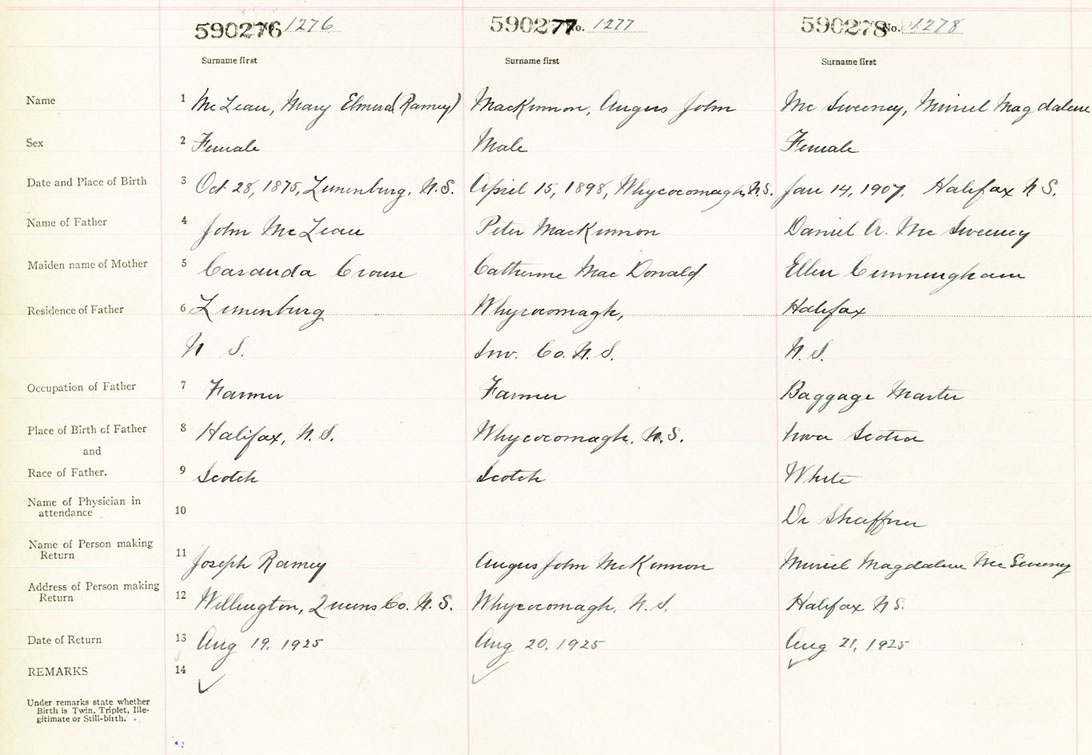 590276 1276 590277 No. 1277 590278 No. 1278
Surname first Surname first Surname first
Name 1 McLean, Mary Elmira (Ramey) MacKinnon, Angus John Mc Sweeney, Muriel Magdalene
Sex 2 Female Male Female
Date and Place of Birth 3 Oct 28, 1875, Lunenburg, N.S. April 15, 1898, Whycocomagh, N.S. Jan 14, 1907, Halifax N S.
Name of Father 4 John McLean Peter MacKinnon Daniel A. Mc Sweeney
Maiden name of Mother 5 Casanda Crouse Catherine Mac Donald Ellen Cunningham
Residence of Father 6 Lunenburg Whycocomagh, Halifax
N S. Inv. Co. N. S. N. S.
Occupation of Father 7 Farmer Farmer Baggage Master
Place of Birth of Father 8 Halifax, N. S. Whycocomagh, N.S. Nova Scotia
and
Race of Father. 9 Scotch Scotch White
Name of Physician in
attendance 10 Dr Shaffner
Name of Person making
Return 11 Joseph Ramey Angus John McKinnon Muriel Magdalene McSweeny
Address of Person making
Return 12 Wellington, Queens Co. N. S. Whycocomagh, N. S. Halifax NS.
Date of Return 13 Aug 19, 1925 Aug 20, 1925 Aug 21, 1925
REMARKS 14
Under remarks state whether
Birth is Twin, Triplet, Ille-
gitimate or Still-birth.